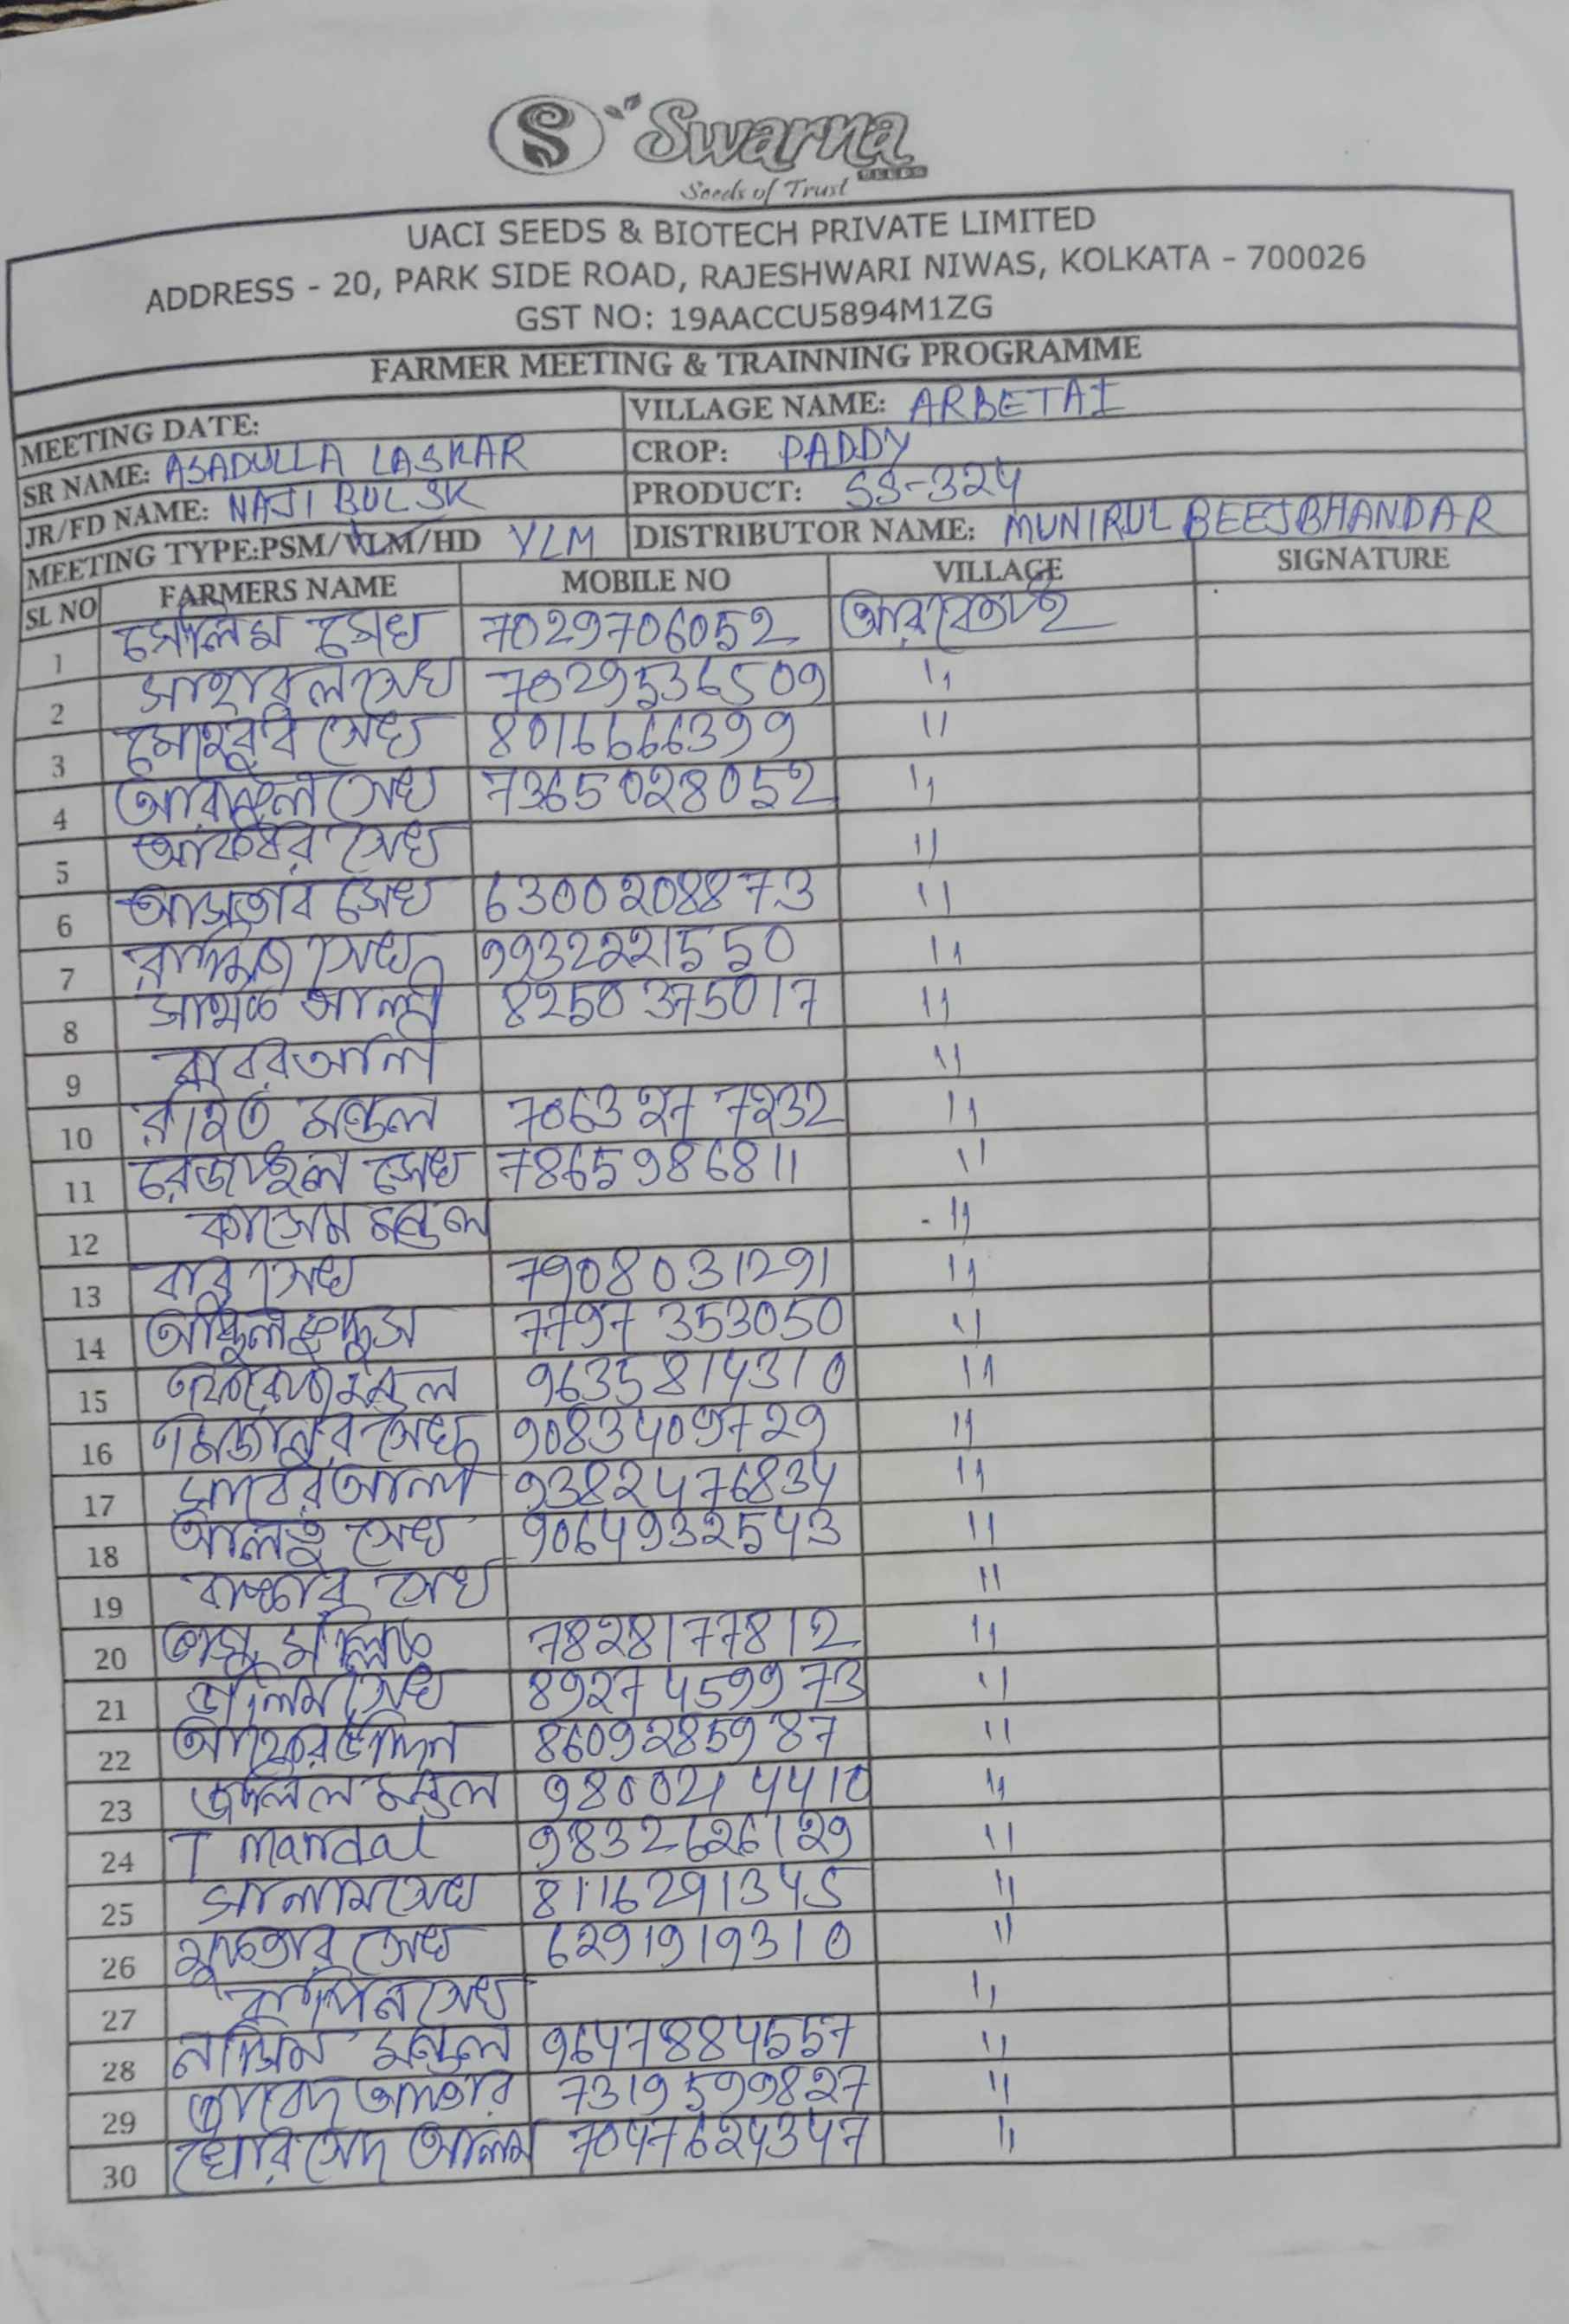 S Swarna
SEEDS
Seeds of Trust
UACI SEEDS & BIOTECH PRIVATE LIMITED
ADDRESS - 20, PARK SIDE ROAD, RAJESHWARI NIWAS, KOLKATA - 700026
GST NO: 19AACCU5894M1ZG
FARMER MEETING & TRAINNING PROGRAMME
MEETING DATE: VILLAGE NAME: ARBETAI
SR NAME: ASADULLA LASKAR CROP: PADDY
JR/FD NAME: NAJIBUL SK PRODUCT: SS-324
MEETING TYPE:PSM/VLM/HD VLM DISTRIBUTOR NAME: MUNIRUL BEEJBHANDAR
SL NO FARMERS NAME MOBILE NO VILLAGE SIGNATURE
1 সেলিম সেখ 7029706052 আরবেতাই
2 সাহাবুল সেখ 7029536509 "
3 মেহবুব সেখ 8016666399 "
4 সেখ 7365028052 "
5 আকবর সেখ "
6 আসতাব সেখ 6300208873 "
7 সেখ 9932221550 "
8 আলী 8250375017 "
9 বাবর আলি "
10 মন্ডল 7063277232 "
11 রেজাউল সেখ 7865986811 "
12 কাসেম মন্ডল "
13 বাবু সেখ 7908031291 "
14 আব্দুল কুদ্দুস 7797353050 "
15 মন্ডল 9635814310 "
16 মিজানুর সেখ 9083409729 "
17 সাবের আলী 9382476834 "
18 সেখ 9064932543 "
19 সেখ "
20 মল্লিক 7828177812 "
21 জালিম সেখ 8927459973 "
22 8609285987 "
23 জলিল মন্ডল 9800244410 "
24 T mandal 9832626129 "
25 সালাম সেখ 8116291345 "
26 মুকতার সেখ 6291919310 "
27 সেখ "
28 মন্ডল 96478884557 "
29 7319599827 "
30 খোরসেদ আলম 7047624347 "